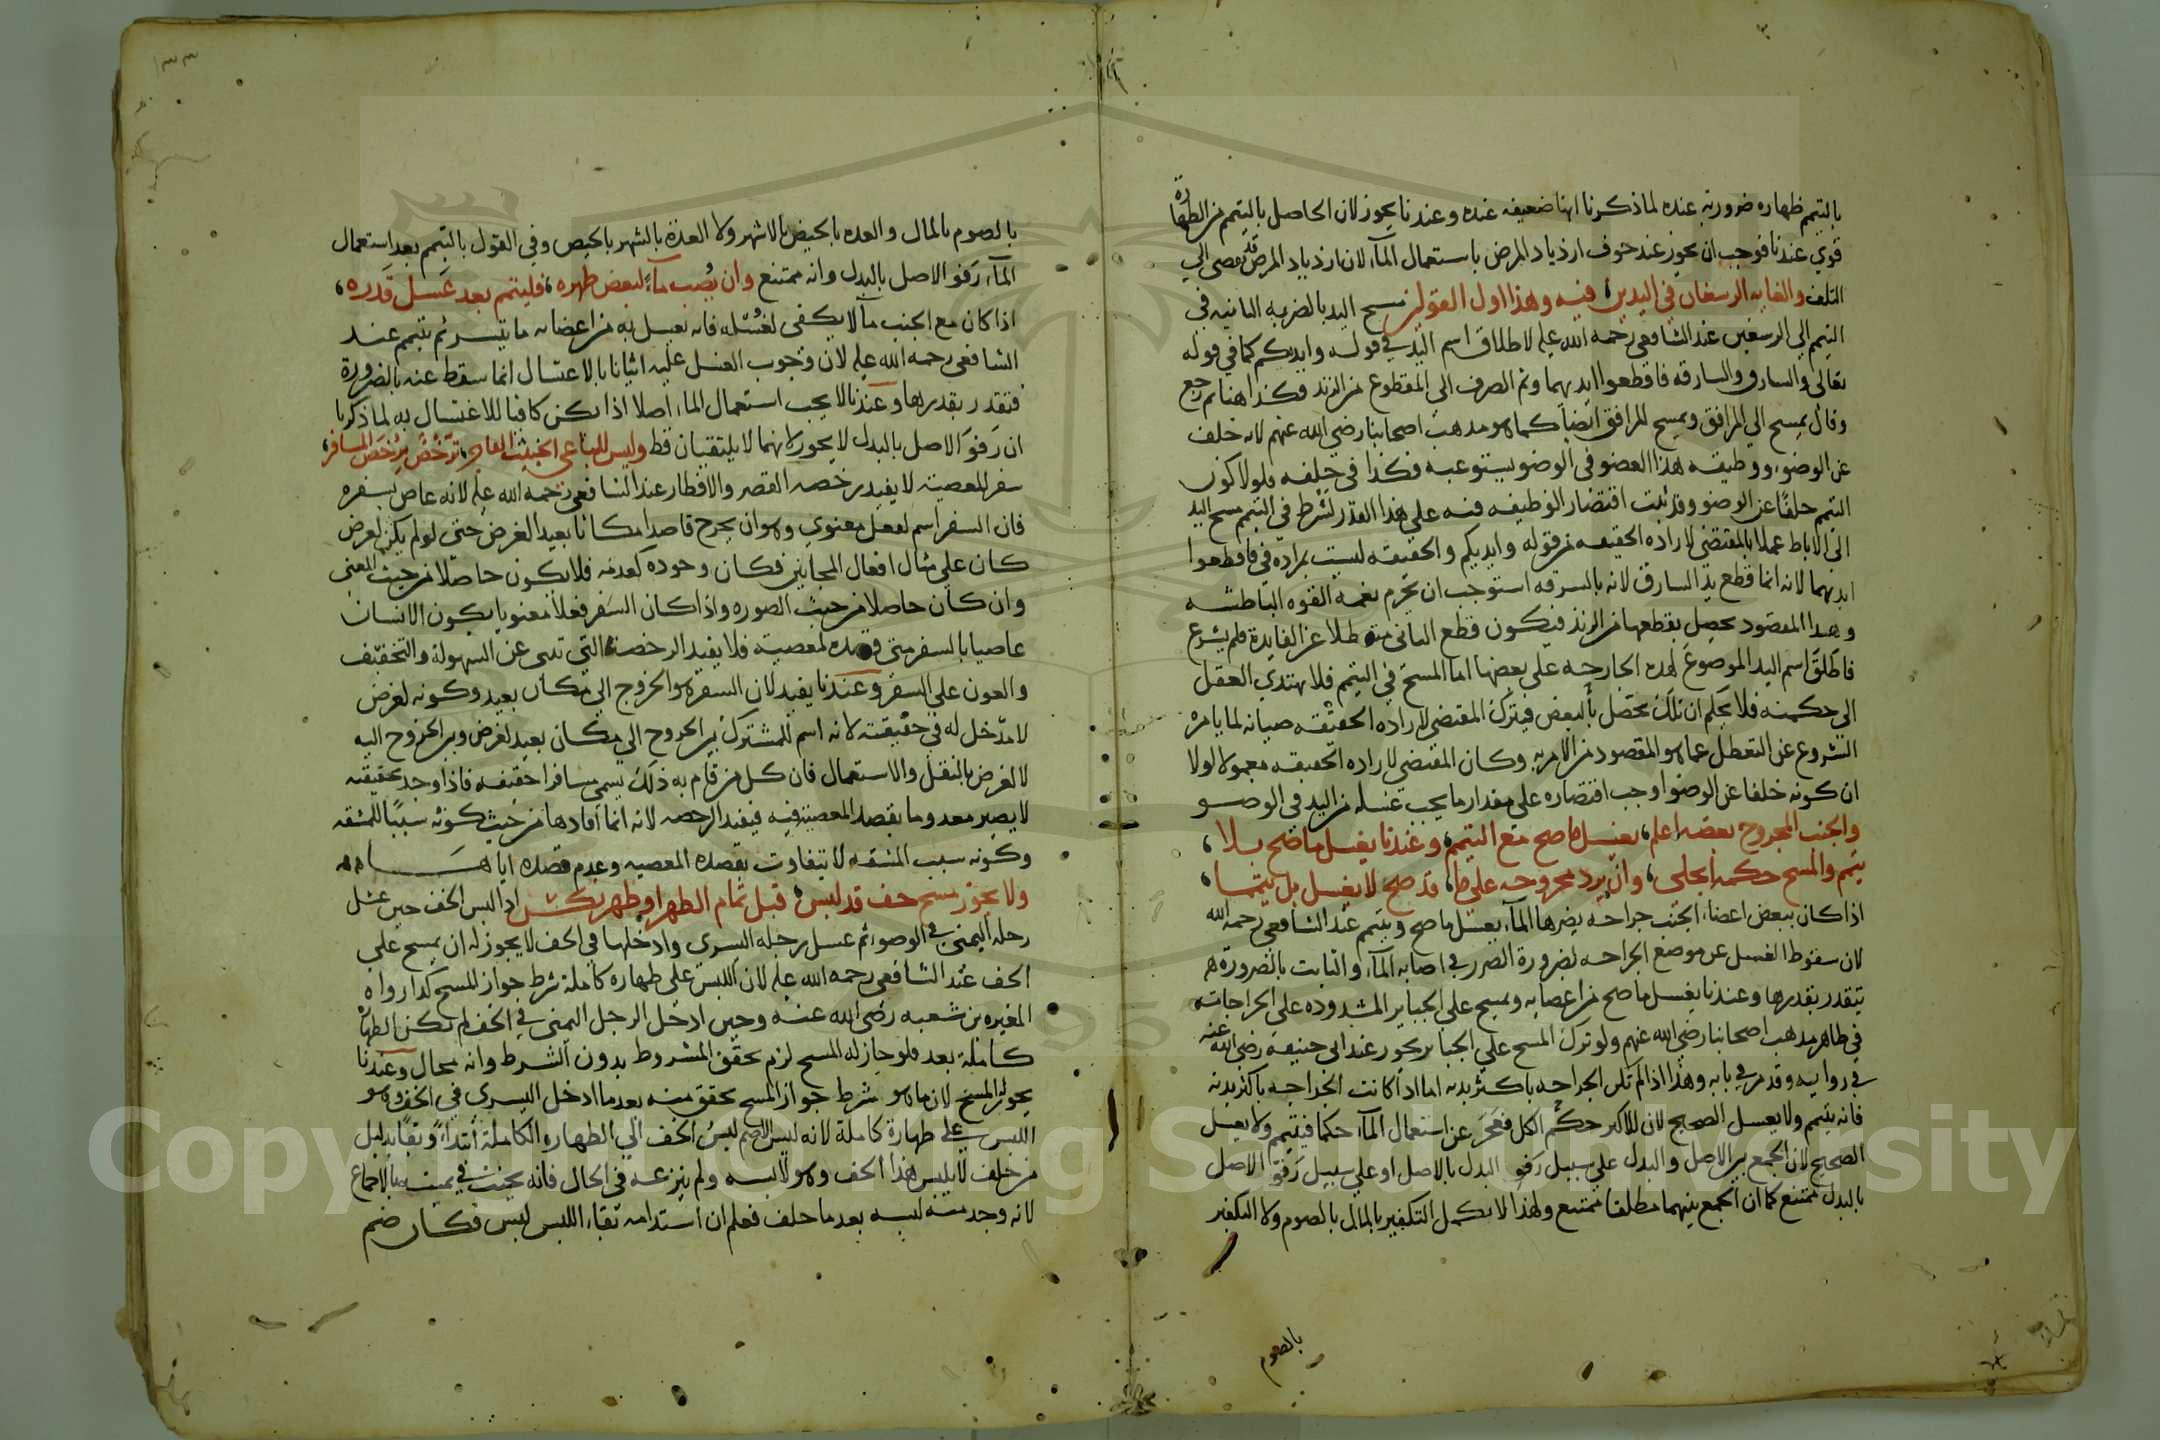 بالتيمم طهارة ضرورية عنده لما ذكرنا انها ضعيفة عنده وعندنا يجوز لان الحاصل بالتيمم من الطهارة
قوي عندنا فوجب ان يجوز عند خوف ازدياد المرض باستعمال الماء لان ازدياد المرض قد يفضي الي
التلف والغاية الرسغان في اليدين فيه وهذا اول القولين مسح اليد بالضربة الثانية في
التيمم الي الرسغين عند الشافعي رحمه الله عليه لاطلاق اسم اليد في قوله وايديكم كما في قوله
تعالى والسارق والسارقة فاقطعوا ايديهما وثم الصرف الي المقطوع من الزند فكذا هنا ثم رجع
وقال يمسح الي المرافق ويمسح المرافق ايضا كما هو مذهب اصحابنا رضي الله عنهم لانه خلف
عن الوضوء ووظيفة هذا العضو في الوضو يستوعبه فكذا في خلفه فلولا كون
التيمم خلفا عن الوضو وقد ثبت اقتصار الوظيفة فيه علي هذا القدر لشرط في التيمم مسح اليد
الي الاباط عملا بالمقتضي لارادة الحقيقة من قوله وايديكم والحقيقة ليست بمرادة في فاقطعوا
ايديهما لانه انما قطع يد السارق لانه بالسرقة استوجب ان يحرم نعمة القوة الباطشة
وهذا المقصود يحصل بقطعها من الزند فيكون قطع الباقي منه طلا عن الفايدة فلم يشرع
فاطلق اسم اليد الموضوع لهذه الجارحة علي بعضها اما المسح في التيمم فلا يهتدي العقل
الي حكمته فلا يحكم ان تلك تحصل بالبعض فيترك المقتضي لارادة الحقيقة صيانة لما يامره
الشروع عن التعطل عما هو المقصود من الامر به وكان المقتضي لارادة الحقيقة معمولا لولا
ان كونه خلفا عن الوضوا وجب اقتصاره علي مقدار ما يجب غسله من اليد في الوضو
والجنب المجروح بعضه اعلم، يغسل ما صح مع التيمم، وعندنا يغسل ما صح بلا،
تيمم والمسح حكمه انجلي، وان يزد مجروحه علي ما، قد صح لا يغسل بل تيمما،
اذا كان ببعض اعضاء الجنب جراحة يضرها الماء يغسل ما صح ويتيمم عند الشافعي رحمه الله
لان سقوط الغسل عن موضع الجراحة لضرورة الضرر في اصابة الماء والثابت بالضرورة
يتقدر بقدرها وعندنا يغسل ما صح من اعضايه ويمسح علي الجباير المشدودة علي الجراجات
في ظاهر مذهب اصحابنا رضي الله عنهم ولو ترك المسح علي الجباير يجوز عند ابي حنيفة رضي الله عنه
في رواية وقد مر في بابه وهذا اذا لم تكن الجراحة باكثر بدنه اما اذا كانت الجراحة باكثر بدنه
فانه يتيمم ولا يغسل الصحيح لان للاكثر حكم الكل فعجز عن استعمال الماء حكما فيتيمم ولا يغسل
الصحيح لان الجمع بين الاصل والبدل علي سبيل رفو البدل بالاصل او علي سبيل رفو الاصل
بالبدل ممتنع كما ان الجمع بينهما مطلقا ممتنع ولهذا لا يكمل التكفير بالمال بالصوم ولا التكفير
بالصوم
١٣٣
بالصوم بالمال والعدة بالحيض بالاشهر ولا العدة بالشهر بالحيض وفي القول بالتيمم بعد استعمال
الماء رفو الاصل بالبدل وانه ممتنع وان يصب ماء لبعض طهره، فليتيمم بعد غسل قدره،
اذا كان مع الجنب ما لا يكفي لغسله فانه يغسل به من اعضائه ما تيسر ثم يتيمم عند
الشافعي رحمه الله عليه لان وجوب الغسل عليه اتيانا بالاغتسال انما سقط عنه بالضرورة
فتقدر بقدرها وعندنا لا يجب استعمال الماء اصلا اذا لم يكن كافيا للاغتسال به لما ذكرنا
ان رفو الاصل بالبدل لا يجوز لانهما لا يلتقيان قط وليس للباغي الخبيث العاصي، ترخص برخص المسافر،
سفر المعصية لا يفيد رخصة القصر والافطار عند الشافعي رحمه الله عليه لانه عاص بسفره
فان السفر اسم لفعل معنوي وهو ان يخرج قاصدا مكانا بعيدا لغرض حتي لو لم يكن لغرض
كان علي مثال افعال المجانين فكان وجوده كعدمه فلا يكون حاصلا من حيث المعني
وان كان حاصلا من حيث الصورة واذا كان السفر فعلا معنويا يكون الانسان
عاصيا بالسفر متي قصده لمعصية فلا يفيد الرخصة التي تنبي عن السهولة والتخفيف
والعون علي السفر وعندنا يفيد لان السفر هو الخروج الي مكان بعيد وكونه لغرض
لا مدخل له في حقيقته لانه اسم للمشترك بين الخروج الي مكان بعيد لغرض وبين الخروج اليه
لا لغرض بالنقل والاستعمال فان كل من قام به ذلك يسمي مسافرا حقيقة فاذا وجد بحقيقته
لا يصير معدوما بقصد المعصية فيه فيفيد الرخصة لانه انما افادها من حيث كونه سببا للمشقة
وكونه سبب المشقة لا يتفاوت بقصده المعصية وعدم قصده اياها
ولا يجوز مسح خف قد لبس، قبل تمام الطهر او طهر نكس اذا لبس الخف حين غسل
رجله اليمني في الوضوء ثم غسل رجله اليسري وادخلها في الخف لا يجوز له ان يمسح علي
الخف عند الشافعي رحمه الله عليه لان اللبس علي طهارة كاملة شرط جواز المسح كذا رواه
المغيرة بن شعبة رضي الله عنه وحين ادخل الرجل اليمني في الخف لم تكن الطهارة
كاملة بعد فلو جاز له المسح لزم تحقق المشروط بدون الشرط وانه محال وعندنا
يجوز المسح لان ما هو شرط جواز المسح تحقق منه بعد ما ادخل اليسري في الخف وهو
اللبس علي طهارة كاملة لانه ليس اللازم لبس الخف الي الطهارة الكاملة ابتداء وبقاء بدليل
من حلف لا يلبس هذا الخف وهو لابسه ولم ينزعه في الحال فانه يحنث في يمينه بالاجماع
لانه وجد منه لبسه بعد ما حلف فعلم ان استدامة بقاء اللبس لبس فكان ضم
Copyright © King Saud University
1957